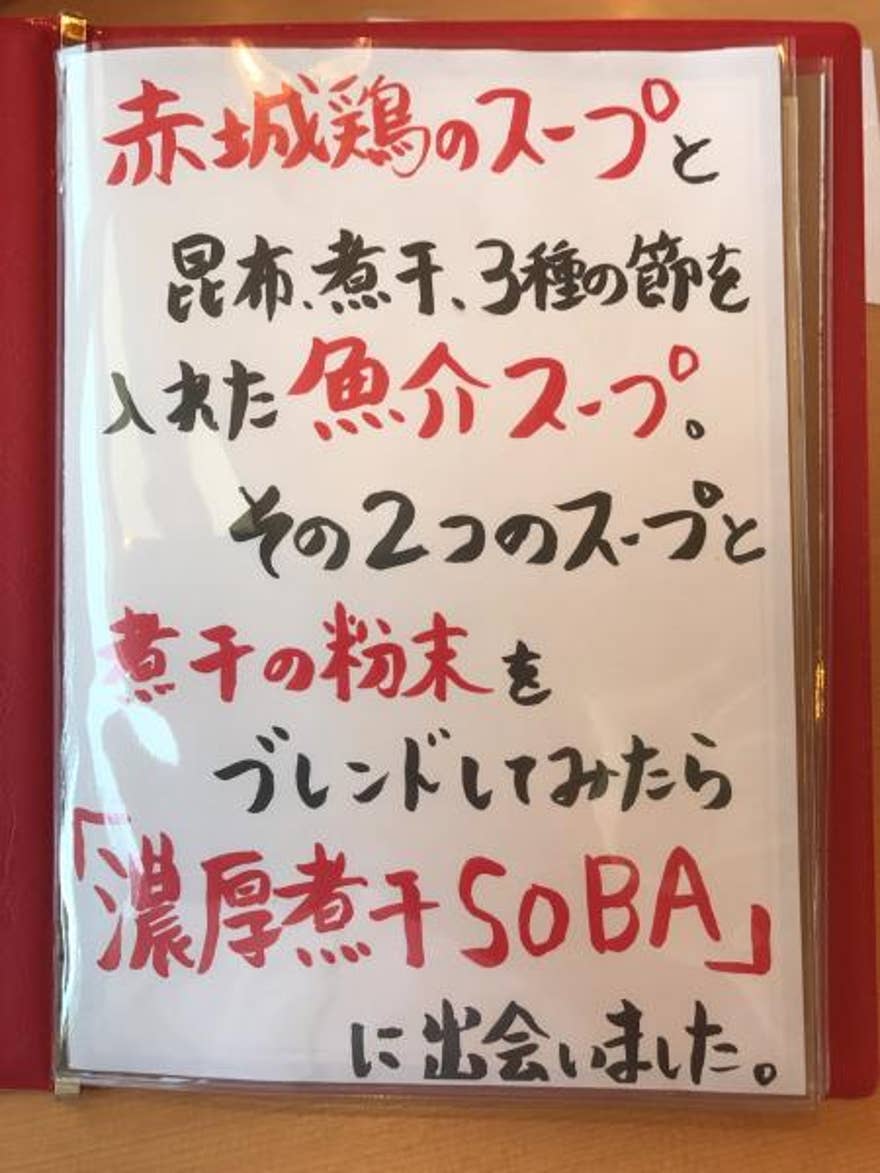 赤城鶏のスープと
昆布、煮干、3種の節を
入れた魚介スープ。
その2つのスープと
煮干の粉末を
ブレンドしてみたら
「濃厚煮干SOBA」
に出会いました。